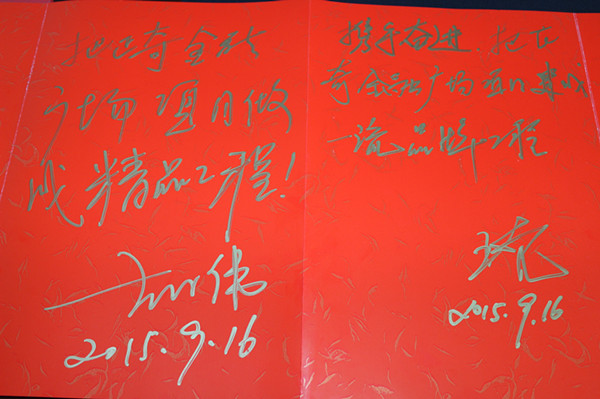 把正奇金融
广场项目做
成精品工程!
伟
2015.9.16
携手奋进,把正
奇金融广场项目建成
一流品牌工程
2015.9.16